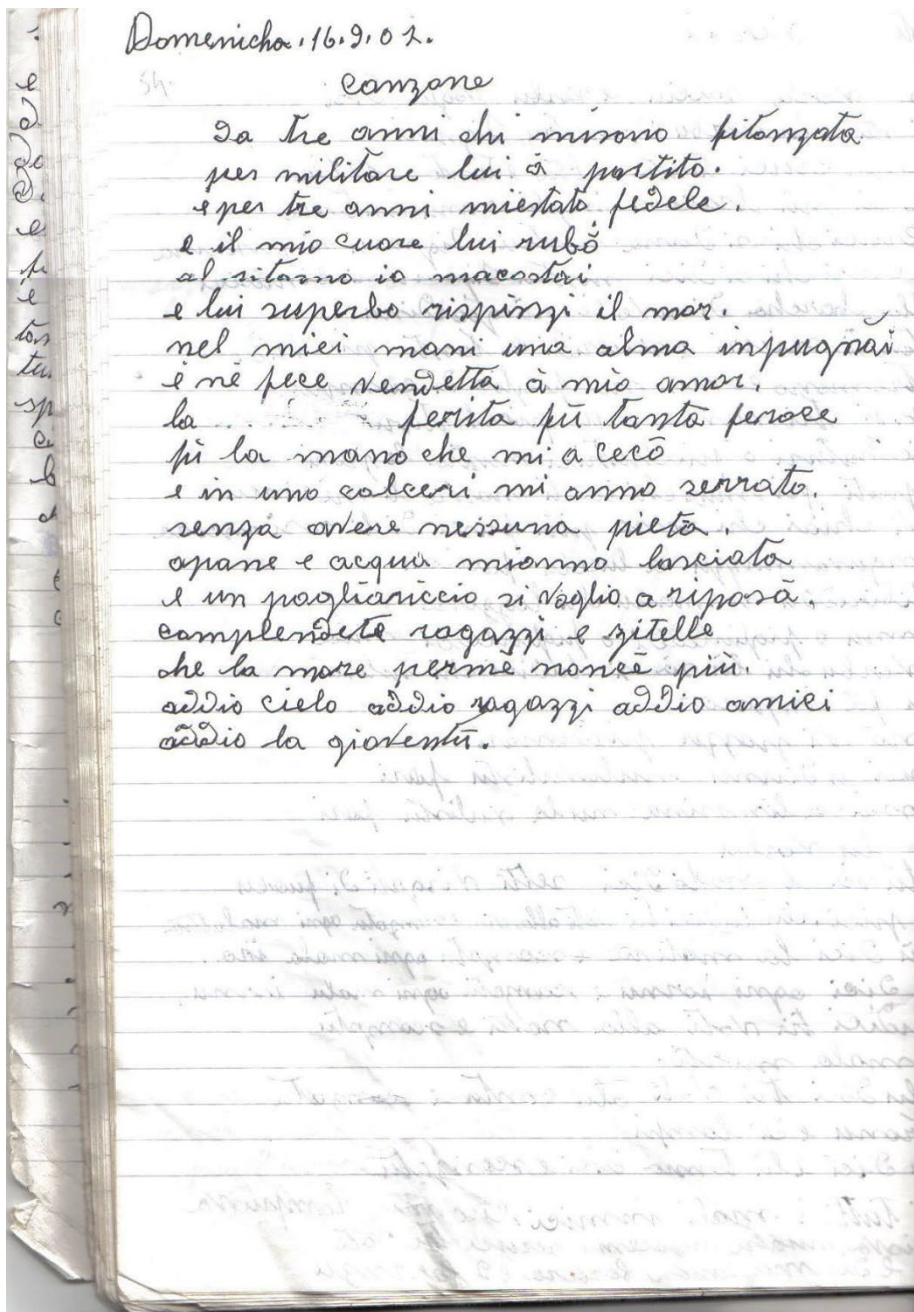 Domenicha. 16.9.02.
54.
Canzone
Da tre anni chi misono fitanzata
per militare lui à partito.
e per tre anni miestato fedele.
e il mio cuore lui rubò
al ritorno io macostai
e lui superbo rispinzi il mar.
nel miei mani una alma inpugnai
e né fece vendetta à mio amor.
la ferita fù tanta feroce
fù la mano che mi a cecò
e in uno calceri mi anno serrato.
senza avere nessuna pietà.
apane e acqua mianno lasciata
e un pagliariccio si voglio a riposà.
complendete ragazzi e zitelle
che la more perme nonce più.
addio cielo addio ragazzi addio amici
addio la gioventù.